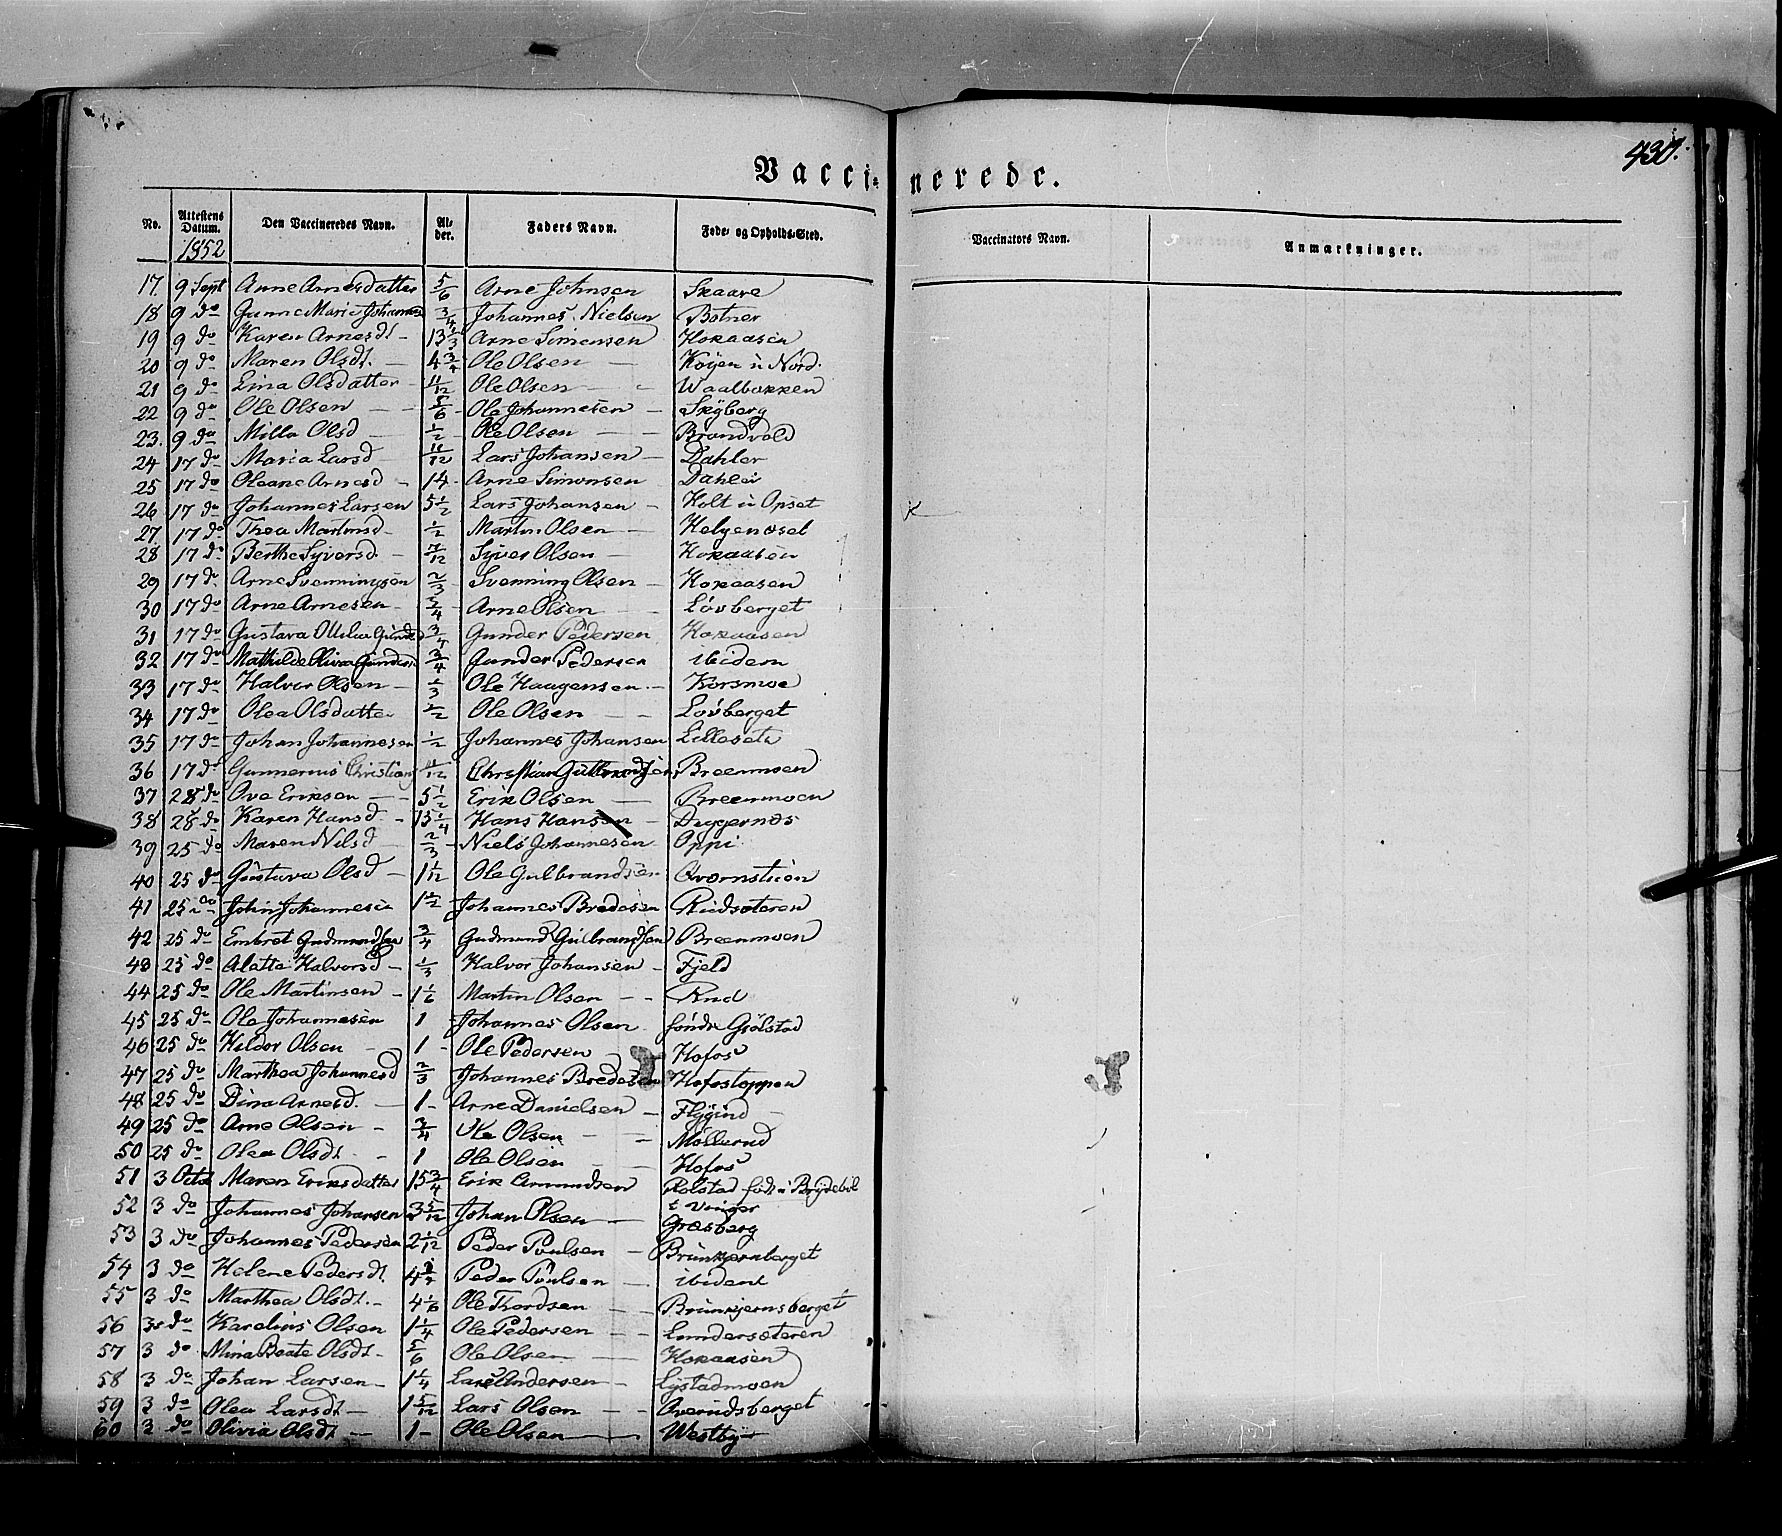 430.
Vaccinerede.
No. Attestens Datum. Den Vaccineredes Navn. Alder. Faders Navn. Føde- og Opholds-Sted. Vaccinators Navn. Anmærkninger.
1852
17 9 Sept Anne Arnesdatter 5/6 Arne Johnsen Skaare
18 9 do Gunne Marie Johannes 3/4 Johannes Nielsen Botner
19 9 do Karen Arnesdt 13 2/3 Arne Simensen Hokaasen
20 9 do Maren Olsdt. 4 3/4 Ole Olsen Køyen u Nord.
21 9 do Lina Olsdatter 11/12 Ole Olsen Waalbakken
22 9 do Ole Olsen 5/6 Ole Johannesen Skyberg
23. 9 do Milla Olsd 1/2 Ole Olsen Brandvold
24 17 do Maria Larsd 11/12 Lars Johansen Dahler
25 17 do Oleane Arnesd 14 Arne Simonsen Dahler
26 17 do Johannes Larsen 5 1/2 Lars Johansen Holt u Opset
27 17 do Thea Martinsd 1/2 Martin Olsen Helgenøset
28 17 do Berthe Syversd. 7/12 Syver Olsen Hokaasen
29 17 do Arne Svenningsen 2/3 Svenning Olsen Hokaasen
30 17 do Arne Arnesen 3/4 Arne Olsen Løvberget
31 17 do Gustava Otilia Gundersd 3/4 Gunder Pedersen Hokaasen
32 17 do Mathilde Oliva Gundersd 3/4 Gunder Pedersen ibidem
33 17 do Halvor Olsen 1/3 Ole Haagensen Korsmoe
34 17 do Olea Olsdatter 1/2 Ole Olsen Løvberget
35 17 do Johan Johannesen 1/2 Johannes Johansen Lilleseth
36 17 do Gunnerius Christians 11/12 Christian Gulbrandsen Breenmoen
37 28 do Ove Eriksen 5 1/2 Erik Olsen Breenmoen
38 28 do Karen Hansd. 15 1/4 Hans Hansen Duggernæs
39 25 do Maren Nilsd 2/3 Niels Johannesen Oppi
40 25 do Gustava Olsd 1 1/12 Ole Gulbrandsen Qværnstuen
41 25 do John Johannesen 1 1/2 Johannes Bredesen Rudsæteren
42 25 do Embret Gudmundsen 3/4 Gudmund Gulbrandsen Breenmoen
43 25 do Alette Halvorsd 1/3 Halvor Johansen Fjeld
44 25 do Ole Martinsen 1 1/6 Martin Olsen Rud
45 25 do Ole Johannesen 1 Johannes Olsen søndr Grølstad
46 25 do Hildor Olsen 1 Ole Pedersen Hofos
47 25 do Marthea Johannesd 2/3 Johannes Bredesen Hofostoppen
48 25 do Dina Arnesd. 1 Arne Danielsen Flygind
49 25 do Arne Olsen 3/4 Ole Olsen Møllerud
50 25 do Olea Olsdt. 1 Ole Olsen Hofos
51 3 Octb Maren Eriksdatter 15 3/4 Erik Amundsen Rolstad født i Brydebøl
52 3 do Johannes Johansen 3 5/12 Johan Olsen i Vinger Græsberg
53 3 do Johannes Pedersen 2 1/12 Peder Poulsen Brunkjernberget
54 3 do Helene Pedersdt. Peder Poulsen ibident
55 3 do Marthea Olsdt. 4 1/6 Ole Thordsen Brunkjernsberget
56 3 do Karelius Olsen 1 1/4 Ole Pedersen Lundersæteren
57 3 do Mina Beate Olsdt. 5/6 Ole Olsen Hokaasen
58 3 do Johan Larsen 1 1/4 Lars Andersen Lystadmoen
59 3 do Olea Larsdt 1 5/12 Lars Olsen Overudsberget
60 3 do Olivia Olsdt 1 Ole Olsen Westbye